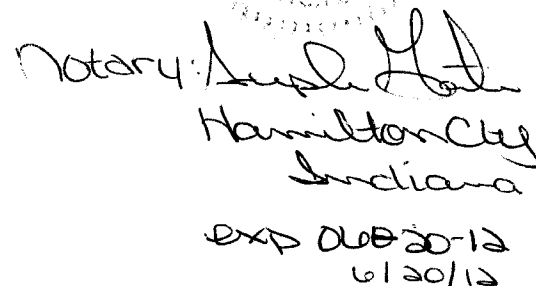 Notary:
Hamilton Cty
Indiana
exp 06-20-12
6/20/12